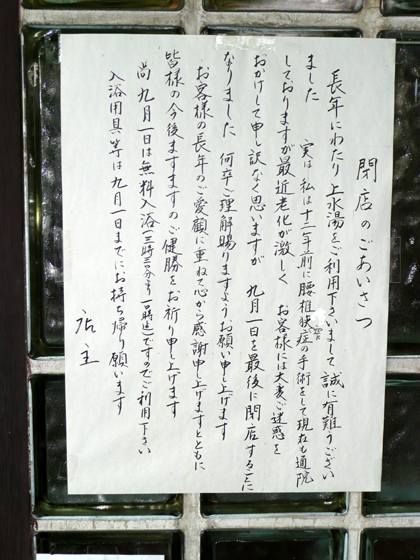 閉店のごあいさつ
長年にわたり上水湯をご利用下さいまして誠に有難うござい
ました 実は 私は十二年前に腰椎狭症の手術をして現在も通院
しておりますが最近老化が激しく お客様には大変ご迷惑を
おかけして申し訳なく思いますが 九月一日を最後に閉店することに
なりました 何卒ご理解賜りますようお願い申し上げます
お客様の長年のご愛顧に重ねて心から感謝申し上げますとともに
皆様の今後ますますのご健勝をお祈り申し上げます
尚 九月一日は無料入浴(三時三十分より 時迄)ですのでご利用下さい
入浴用具等は九月一日までにお持ち帰り願います
店主